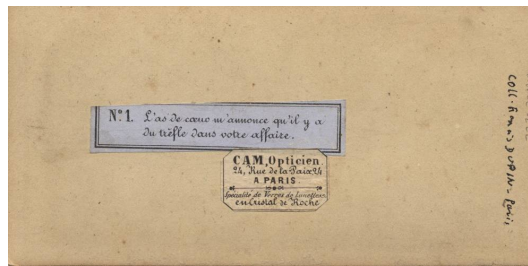 N.º 1. L'as de cœur m'annonce qu'il y a
du trèfle dans votre affaire.
CAM, Opticien
24, Rue de la Paix 24
A PARIS
Spécialité de Verres de Lunettes
en Cristal de Roche
COLL.
DUPIN - Paris